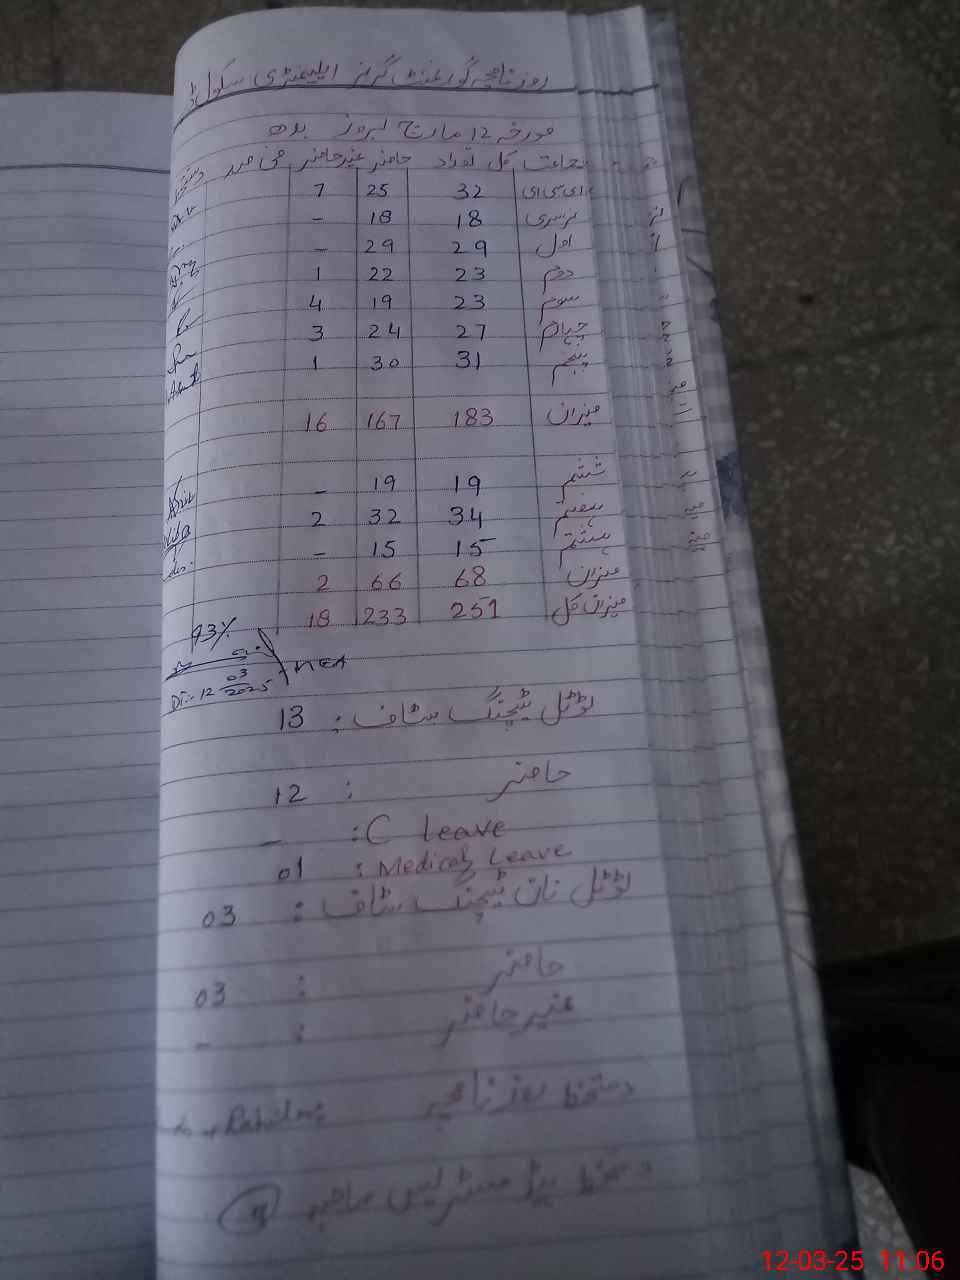 روزنامچہ گورنمنٹ گرلز ایلیمنٹری سکول
مورخہ 12 مارچ بروز بدھ
جماعت کل تعداد حاضر غیرحاضر فی صد دستخط
ای سی ای 32 25 7
نرسری 18 18 -
اول 29 29 -
دوم 23 22 1
سوم 23 19 4
چہارم 27 24 3
پنجم 31 30 1
میزان 183 167 16
ششم 19 19 -
ہفتم 34 32 2
ہشتم 15 15 -
میزان 68 66 2
میزان کل 251 233 18
93%
Dt:- 12 03 2025
ٹوٹل ٹیچنگ سٹاف : 13
حاضر : 12
C leave : -
Medical Leave : 01
ٹوٹل نان ٹیچنگ سٹاف : 03
حاضر : 03
غیر حاضر : -
دستخط روزنامچہ
دستخط ہیڈ مسٹریس صاحبہ
12-03-25 11:06